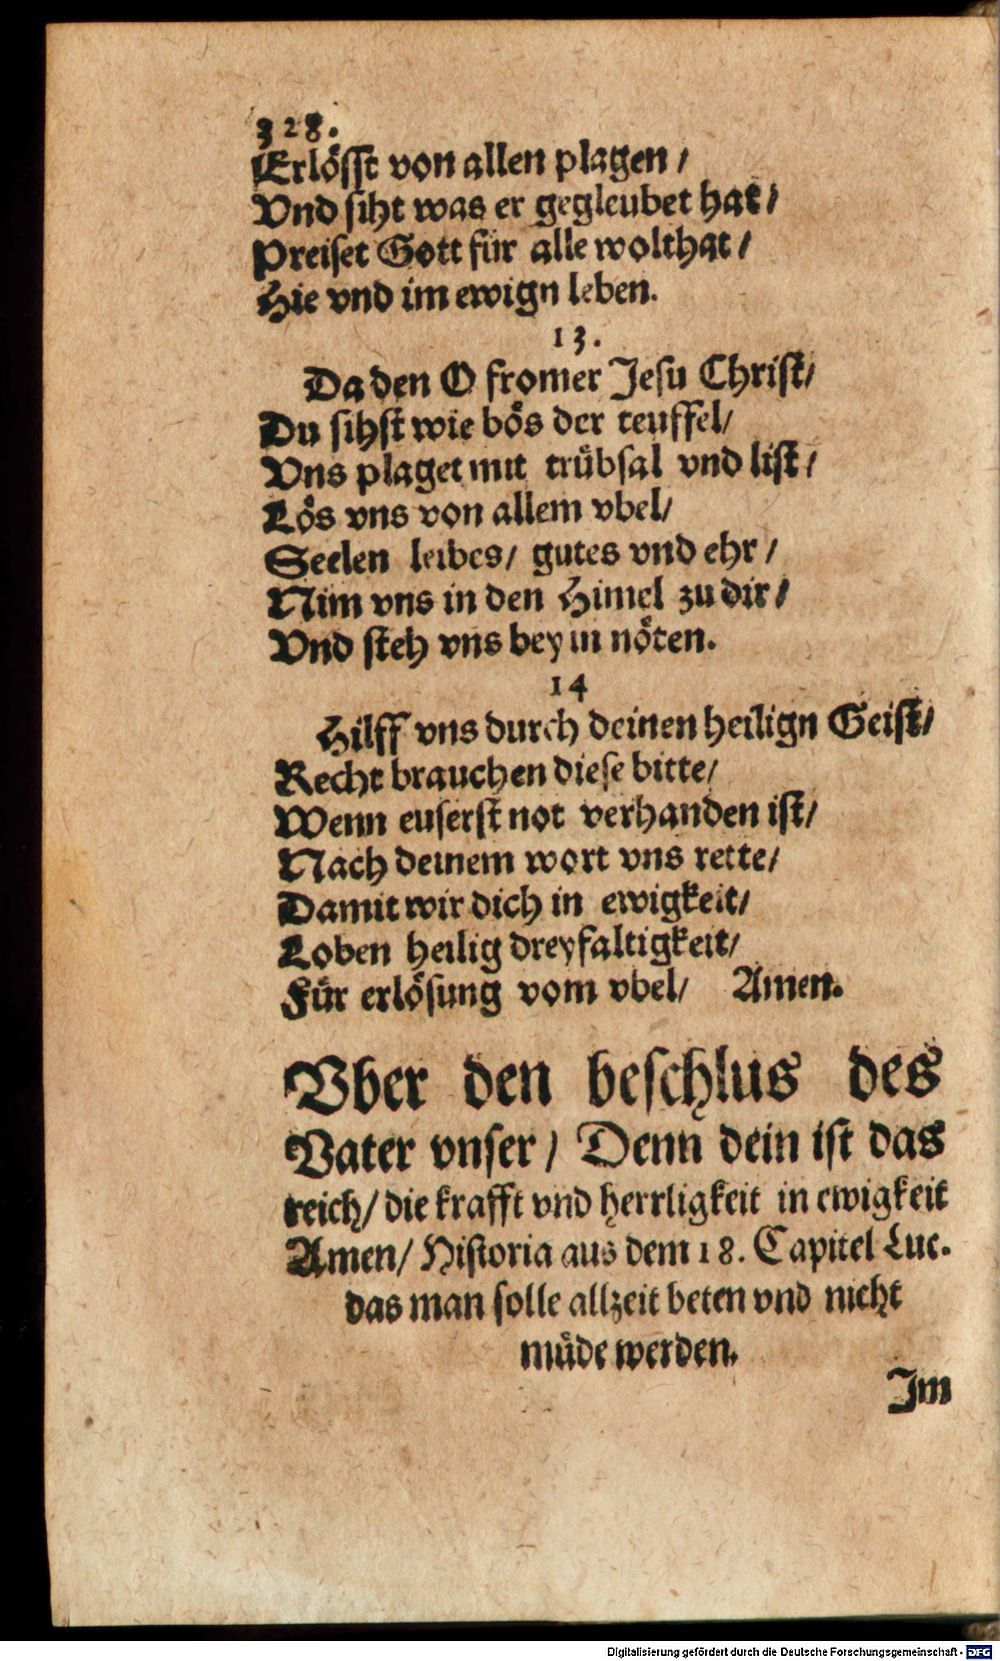 328.
Erlösst von allen plagen /
Vnd siht was er gegleubet hat /
Preiset Gott für alle wolthat /
Hie vnd im ewign leben.
13.
Da den O fromer Jesu Christ /
Du sihst wie bös der teuffel /
Vns plaget mit trübsal vnd list /
Lös vns von allem vbel /
Seelen leibes / gutes vnd ehr /
Nim vns in den Himel zu dir /
Vnd steh vns bey in nöten.
14
Hilff vns durch deinen heilign Geist /
Recht brauchen diese bitte /
Wenn euserst not verhanden ist /
Nach deinem wort vns rette /
Damit wir dich in ewigkeit /
Loben heilig dreyfaltigkeit /
Für erlösung vom vbel / Amen.
Vber den beschlus des
Vater vnser / Denn dein ist das
reich / die krafft vnd herrligkeit in ewigkeit
Amen / Historia aus dem 18. Capitel Luc.
das man solle allzeit beten vnd nicht
müde werden.
Im
Digitalisierung gefördert durch die Deutsche Forschungsgemeinschaft - DFG